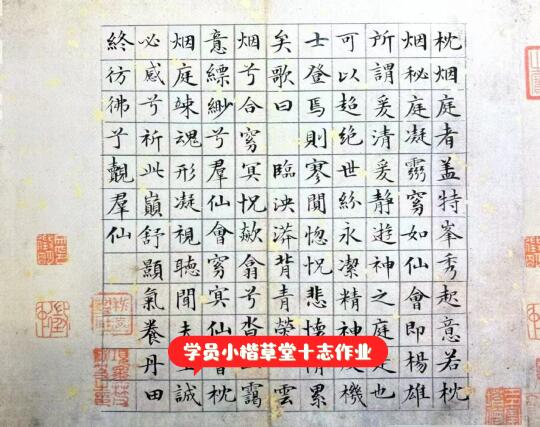 枕烟庭者盖特峯秀起意若枕
烟秘庭凝霱窅如仙會即楊雄
所謂爰清爰静遊神之庭是也
可以超絶世紛永潔精神機
士登焉則寥闃惚怳悲懷情累
矣歌曰臨泱漭背青榮雲
烟兮合窅冥怳歘翕兮沓靄
意縹緲兮羣仙會窅冥仙會枕
烟庭竦魂形凝視聽聞夫誠
必感兮祈此巔舒顥氣養丹田
終彷彿兮覿羣仙
学员小楷草堂十志作业